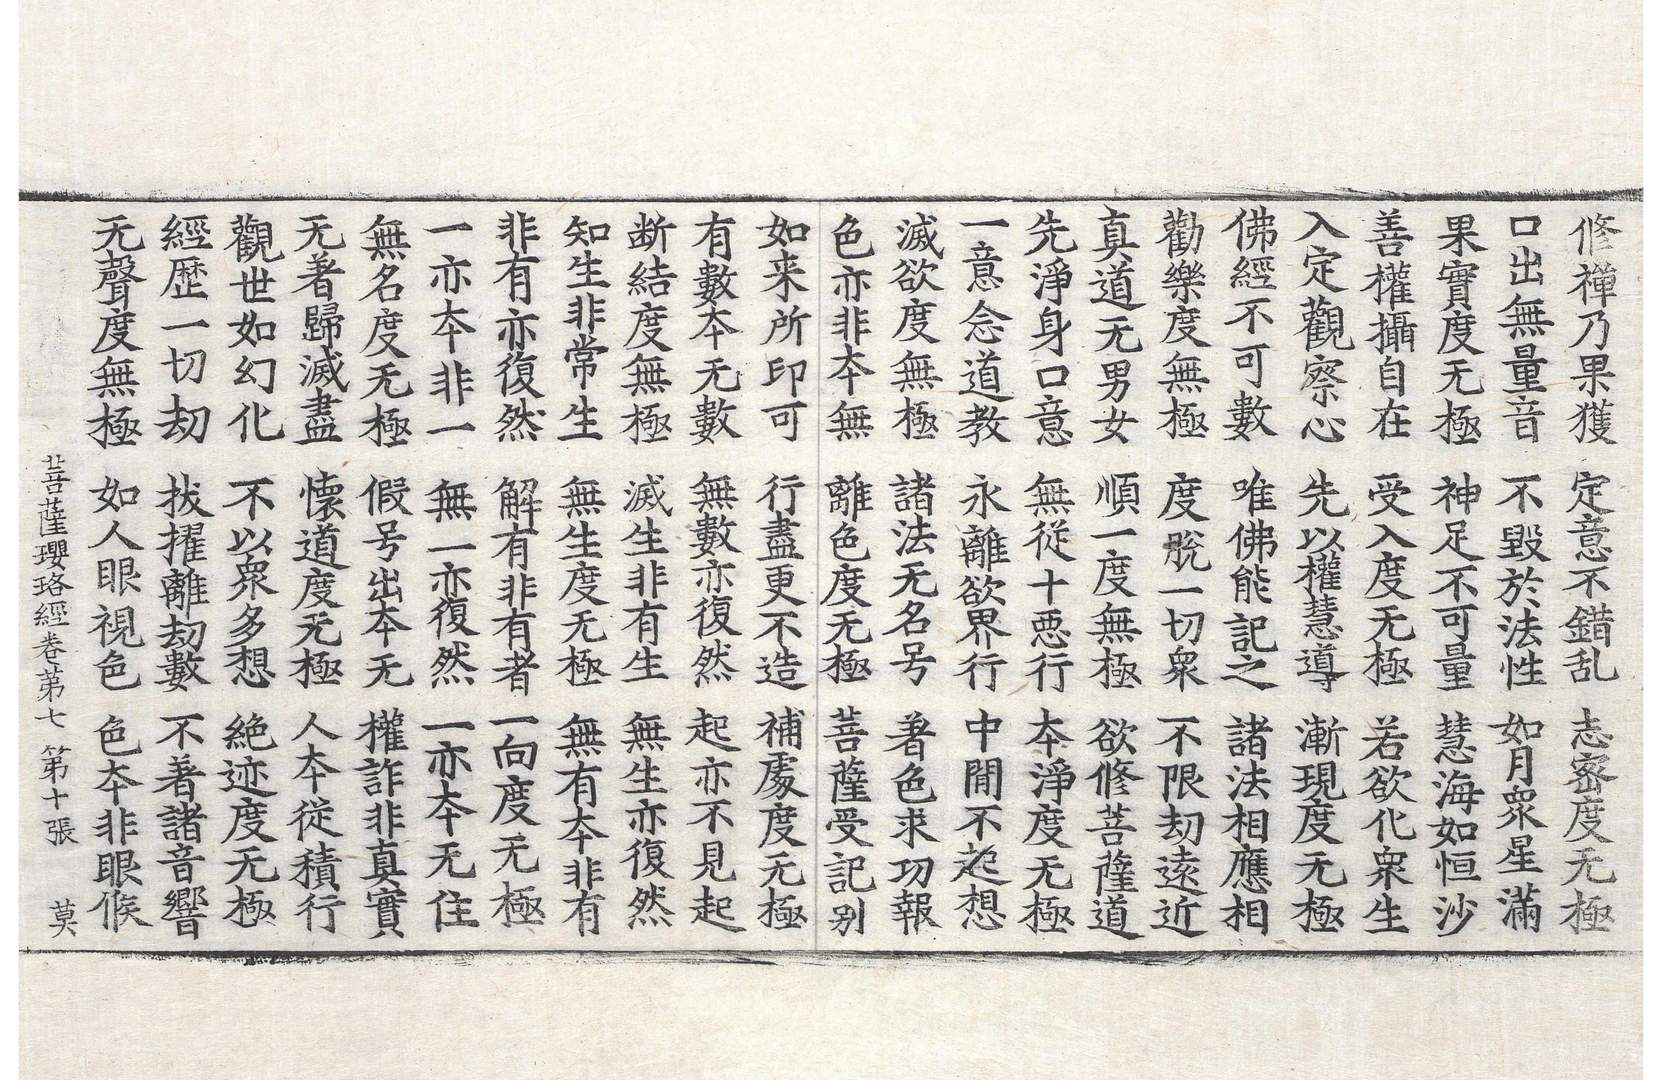 修禪乃果獲 定意不錯乱 志密度无極
口出無量音 不毀於法性 如月衆星滿
果實度无極 神足不可量 慧海如恒沙
善權攝自在 受入度无極 若欲化衆生
入定觀察心 先以權慧導 漸現度无極
佛經不可數 唯佛能記之 諸法相應相
勸樂度無極 度脫一切衆 不限劫遠近
真道无男女 順一度無極 欲修菩薩道
先淨身口意 無從十惡行 本淨度无極
一意念道教 永離欲界行 中間不起想
滅欲度無極 諸法无名号 著色求功報
色亦非本無 離色度无極 菩薩受記别
如来所印可 行盡更不造 補處度无極
有數本无數 無數亦復然 起亦不見起
断結度無極 滅生非有生 無生亦復然
知生非常生 無生度无極 無有本非有
非有亦復然 解有非有者 一向度无極
一亦本非一 無一亦復然 一亦本无住
無名度无極 假号出本无 權詐非真實
无著歸滅盡 懷道度无極 人本從積行
觀世如幻化 不以衆多想 絶迹度无極
經歷一切劫 拔擢離劫數 不著諸音響
无聲度無極 如人眼視色 色本非眼候
菩薩瓔珞經卷第七 第十張 莫